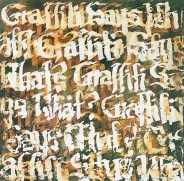 Graffiti Says Wh
at? Graffiti Say
What? Graffiti S
ys What? Graffiti
Says What?
affiti Says Wh